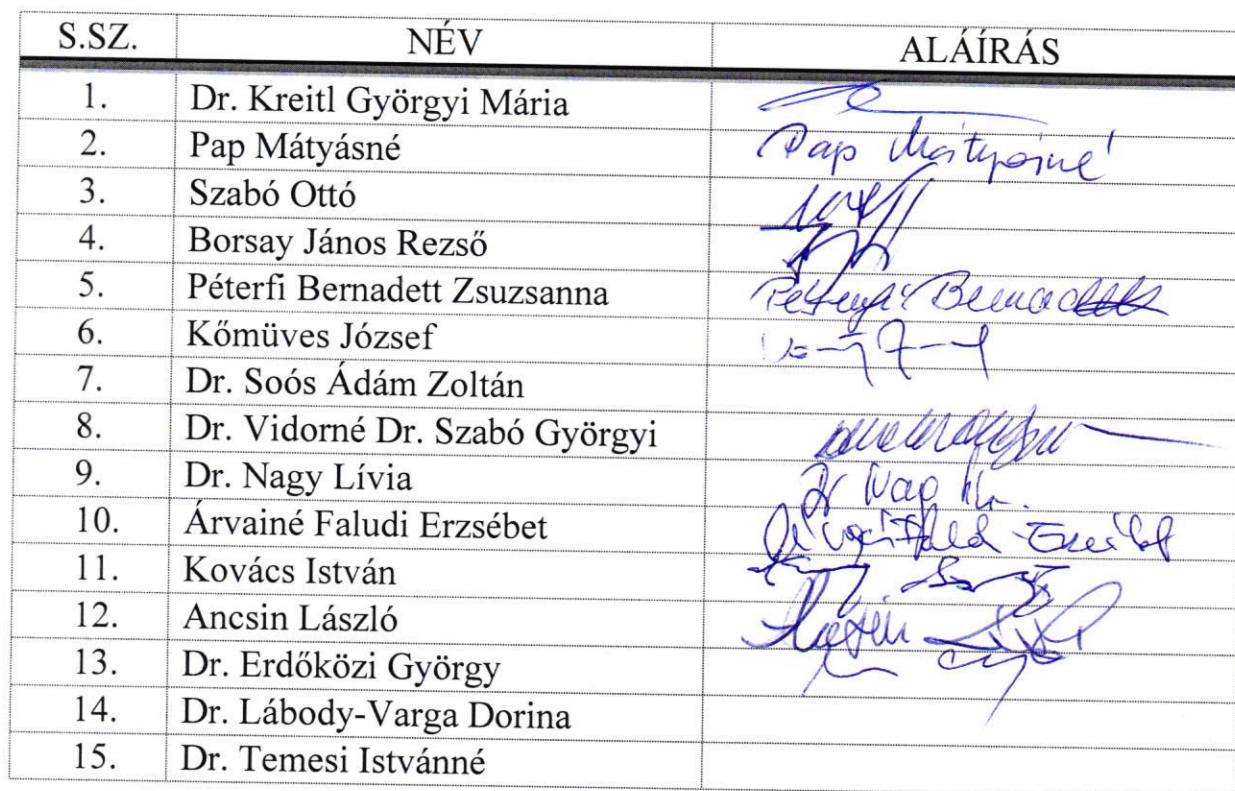 S.SZ. NÉV ALÁÍRÁS
1. Dr. Kreitl Györgyi Mária
2. Pap Mátyásné Pap Mátyásné
3. Szabó Ottó
4. Borsay János Rezső
5. Péterfi Bernadett Zsuzsanna
6. Kőmüves József
7. Dr. Soós Ádám Zoltán
8. Dr. Vidorné Dr. Szabó Györgyi
9. Dr. Nagy Lívia
10. Árvainé Faludi Erzsébet
11. Kovács István
12. Ancsin László
13. Dr. Erdőközi György
14. Dr. Lábody-Varga Dorina
15. Dr. Temesi Istvánné